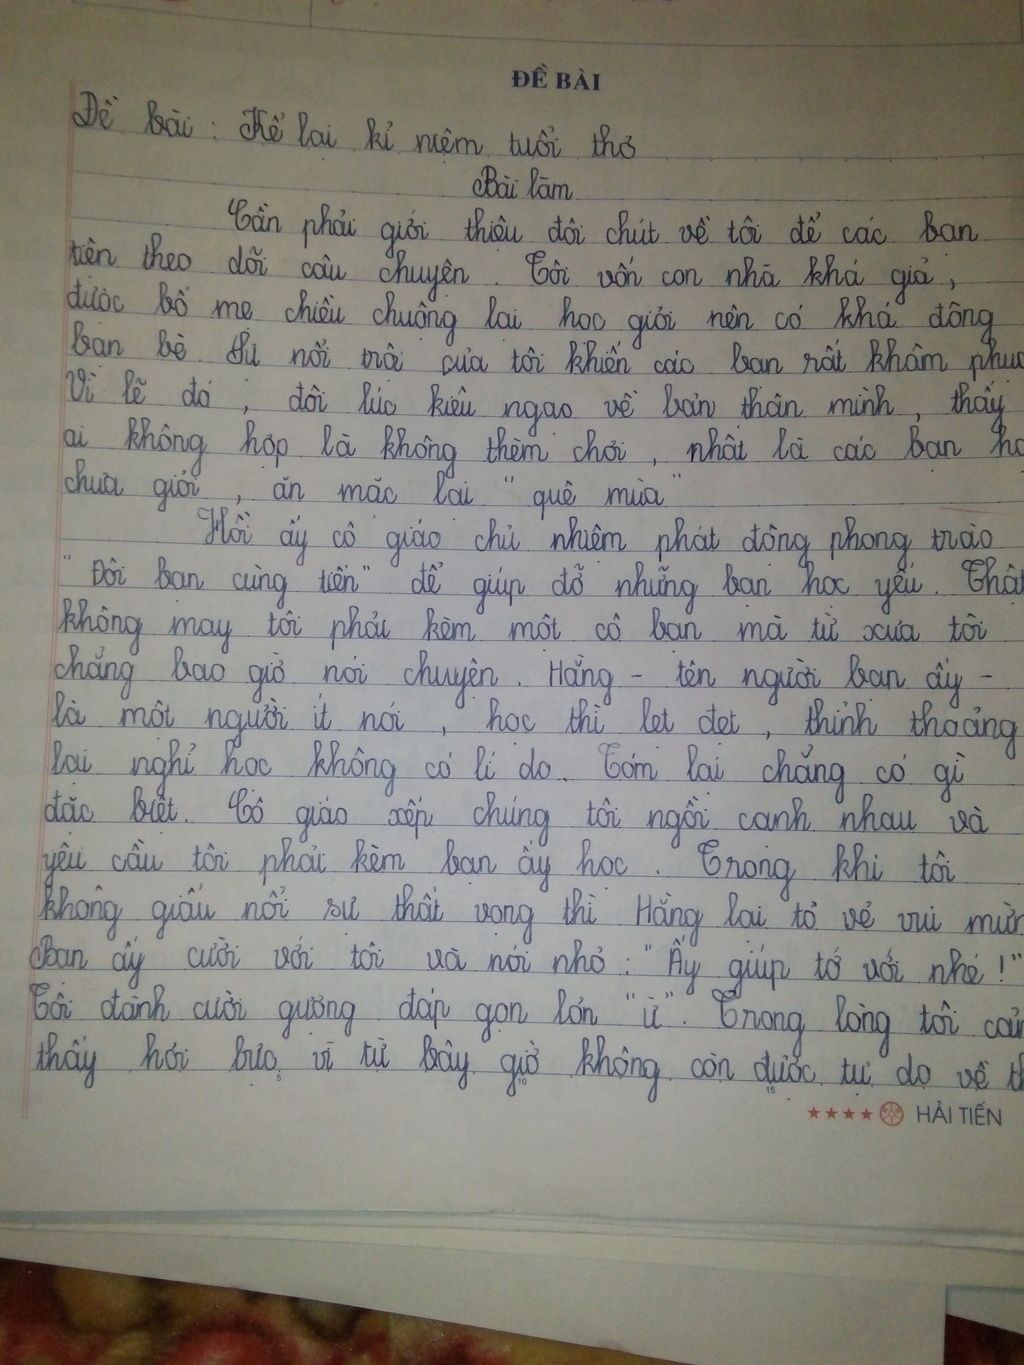 ĐỀ BÀI
Đề bài : Kể lại kỉ niệm tuổi thơ
Bài làm
Cần phải giới thiệu đôi chút về tôi để các bạn
tiện theo dõi câu chuyện . Tôi vốn con nhà khá giả ,
được bố mẹ chiều chuộng lại học giỏi nên có khá đông
bạn bè Sự nổi trội của tôi khiến các bạn rất khâm phục
Vì lẽ đó , đôi lúc kiêu ngạo về bản thân mình , thấy
ai không hợp là không thèm chơi , nhất là các bạn
chưa giỏi , ăn mặc lại " quê mùa "
Hồi ấy cô giáo chủ nhiệm phát động phong trào
" Đôi bạn cùng tiến " để giúp đỡ những bạn học yếu . Thật
không may tôi phải kèm một cô bạn mà từ xưa tôi
chẳng bao giờ nói chuyện . Hằng - tên người bạn ấy -
là một người ít nói , học thì lẹt đẹt , thỉnh thoảng
lại nghỉ học không có lí do . Tóm lại chẳng có gì
đặc biệt . Cô giáo xếp chúng tôi ngồi cạnh nhau và
yêu cầu tôi phải kèm bạn ấy học . Trong khi tôi
không giấu nổi sự thất vọng thì Hằng lại tỏ vẻ vui
Bạn ấy cười với tôi và nói nhỏ : " Ấy giúp tớ với nhé ! "
Tôi đành cười gượng đáp gọn lỏn " ừ " . Trong lòng tôi
thấy hơi bực vì từ bây giờ không còn được tự do về
5 10 15
★★★★ HẢI TIẾN